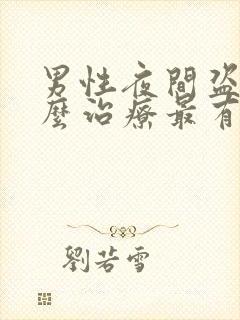 男性夜間盗
麼治療最有
劉若雪